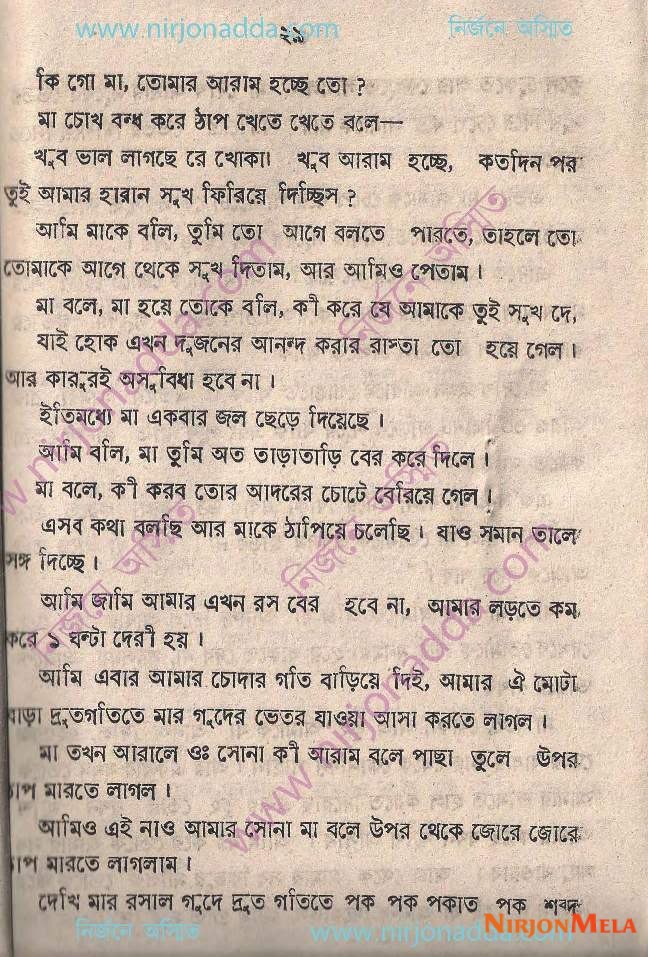 www.nirjonadda.com ২৯ নির্জনে অস্মিত
কি গো মা, তোমার আরাম হচ্ছে তো ?
মা চোখ বন্ধ করে ঠাপ খেতে খেতে বলে—
খুব ভাল লাগছে রে খোকা। খুব আরাম হচ্ছে, কতদিন পর
তুই আমার হারান সুখ ফিরিয়ে দিচ্ছিস ?
আমি মাকে বলি, তুমি তো আগে বলতে পারতে, তাহলে তো
তোমাকে আগে থেকে সুখ দিতাম, আর আমিও পেতাম।
মা বলে, মা হয়ে তোকে বলি, কী করে যে আমাকে তুই সুখ দে,
যাই হোক এখন দুজনের আনন্দ করার রাস্তা তো হয়ে গেল।
আর কারুরই অসুবিধা হবে না।
ইতিমধ্যে মা একবার জল ছেড়ে দিয়েছে।
আমি বলি, মা তুমি অত তাড়াতাড়ি বের করে দিলে।
মা বলে, কী করব তোর আদরের চোটে বেরিয়ে গেল।
এসব কথা বলছি আর মাকে ঠাপিয়ে চলেছি। যাও সমান তালে
সঙ্গ দিচ্ছে।
আমি জামি আমার এখন রস বের হবে না, আমার লড়তে কম
করে ১ ঘন্টা দেরী হয়।
আমি এবার আমার চোদার গতি বাড়িয়ে দিই, আমার ঐ মোটা
বাড়া দ্রুতগতিতে মার গুদের ভেতর যাওয়া আসা করতে লাগল।
মা তখন আরালে ওঃ সোনা কী আরাম বলে পাছা তুলে উপর
মারতে লাগল।
আমিও এই নাও আমার সোনা মা বলে উপর থেকে জোরে জোরে
মারতে লাগলাম।
দেখি মার রসাল গুদে দ্রুত গতিতে পক পক পকাত পক শব্দ
নির্জনে অস্মিত www.nirjonadda.com NIRJONMELA
www.nirjonadda.com
নির্জনে অস্মিত
www.nirjonadda.com
নির্জনে অস্মিত
নির্জনে অস্মিত